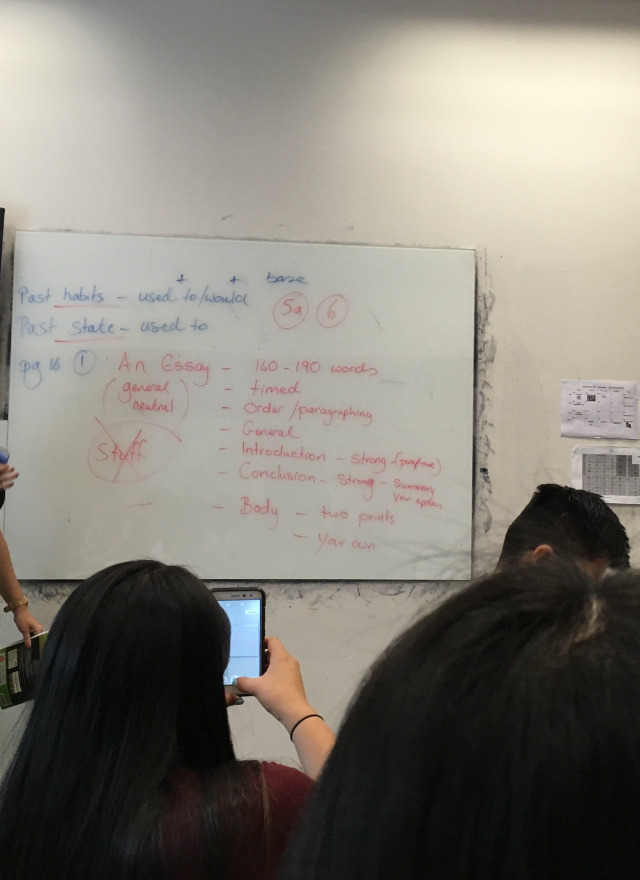 + + base
Past habits - used to/would
5a 6
Past state - used to
pg 16 1 An Essay - 140 - 190 words
(general neutral) - timed
- Order/paragraphing
- General
Stuff - Introduction - Strong -
- Conclusion - Strong - Summary
your opinion
- Body - two points
- Your own